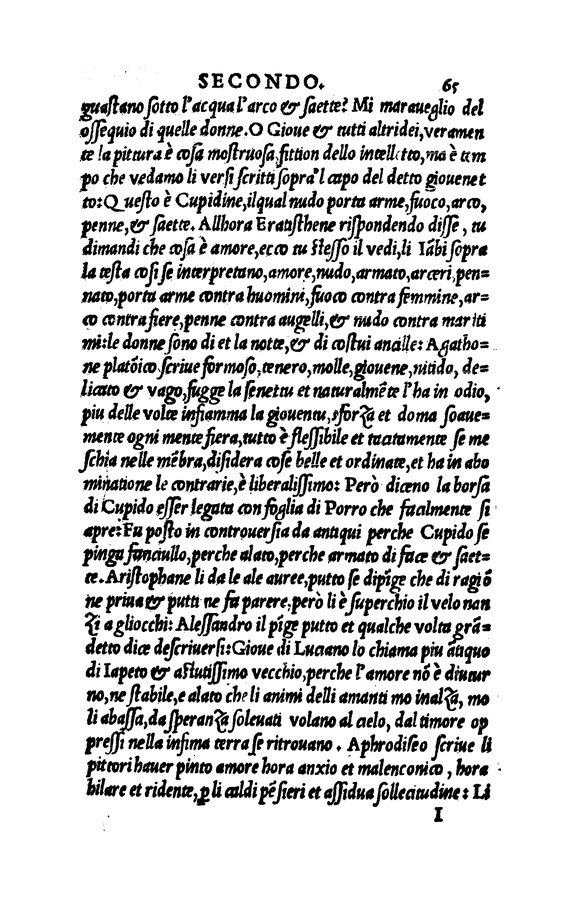 SECONDO. 65
guastano sotto l'acqua l'arco & saette? Mi maraueglio del
ossequio di quelle donne. O Gioue & tutti altri dei, veramen
te la pittura è cosa mostruosa, fittion dello intelletto, ma è tem
po che vedamo li versi scritti sopra'l capo del detto giouenet
to: Questo è Cupidine, il qual nudo porta arme, fuoco, arco,
penne, & saette. Allhora Eratisthene rispondendo disse, tu
dimandi che cosa è amore, ecco tu stesso il vedi, li Iābi sopra
la testa cosi se interpretano, amore, nudo, armato, arceri, pen=
nato, porta arme contra huomini, fuoco contra femmine, ar=
co contra fiere, penne contra augelli, & nudo contra mariti
mi: le donne sono di et la notte, & di costui ancille: Agatho=
ne platōico scriue formoso, tenero, molle, giouene, nitido, de=
licato & vago, fugge la senettu et naturalmēte l'ha in odio,
piu delle volte infiamma la giouentu, sforza et doma soaue=
mente ogni mente fiera, tutto è flessibile et tacitamente se me
schia nelle mēbra, disidera cose belle et ordinate, et ha in abo
minatione le contrarie, è liberalissimo: Però diceno la borsa
di Cupido esser legata con foglia di Porro che facilmente si
apre: Fu posto in controuersia da antiqui perche Cupido se
pinga fanciullo, perche alato, perche armato di face & saet=
te. Aristophane li da le ale auree, putto se dipīge che di ragiō
ne priua & putti ne fa parere, però li è superchio il velo nan
zi a gliocchi: Alessandro il pīge putto et qualche volta grā=
detto dice descriuersi: Gioue di Luciano lo chiama piu ātiquo
di Iapeto & astutissimo vecchio, perche l'amore nō è diutur
no, ne stabile, e alato che li animi delli amanti mo inalza, mo
li abassa, da speranza soleuati volano al cielo, dal timore op
pressi nella infima terra se ritrouano. Aphrodiseo scriue li
pittori hauer pinto amore hora anxio et malenconico, hora
hilare et ridente, ꝑ li caldi pēsieri et assidua sollecitudine: Li
I